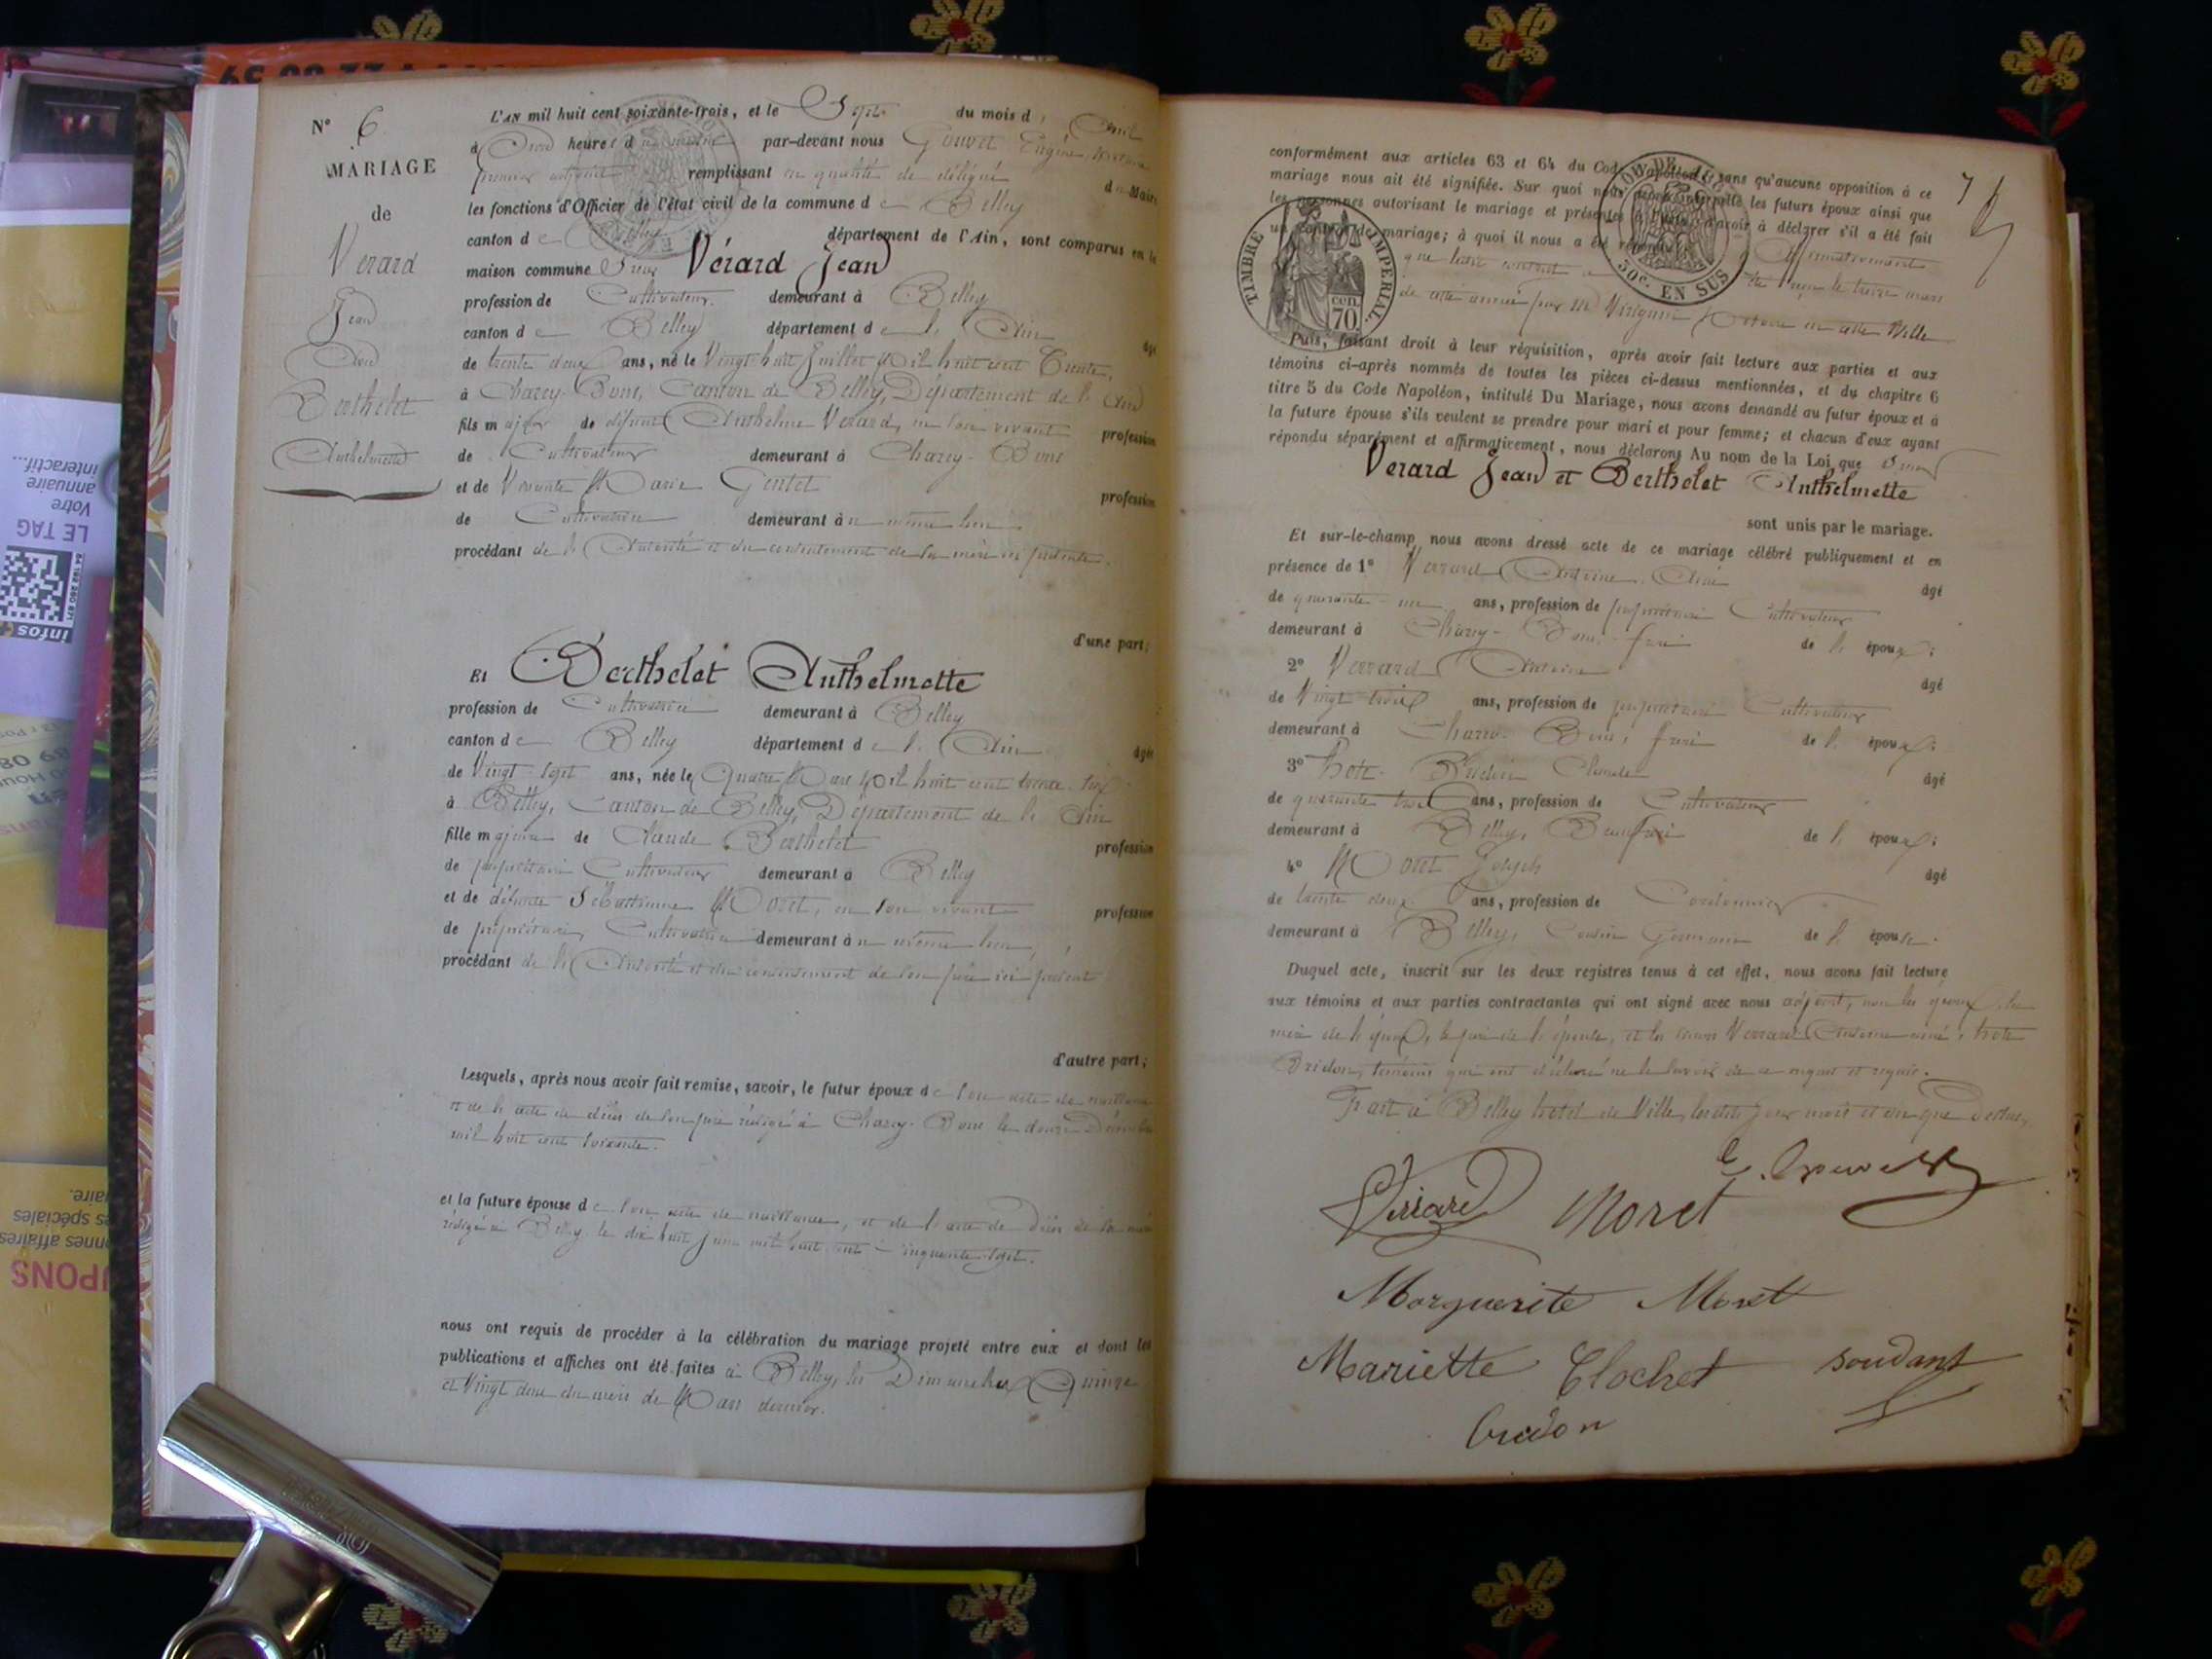 N° 6
MARIAGE
de
Verard
Jean
Avec
Berthelet
Anthelmette
L'AN mil huit cent soixante-trois, et le Sept du mois d' Avril
à heures du matin par-devant nous Gouvet Eugène
premier adjoint remplissant en qualité de délégué du Maire
les fonctions d'Officier de l'état civil de la commune de Belley
canton de Belley département de l'Ain, sont comparus en la
maison commune Sieur Vérard Jean
profession de Cultivateur demeurant à Belley
canton de Belley département de l'Ain âgé
de trente deux ans, né le Vingt huit Juillet Mil huit cent Trente,
à Charey-Bons, Canton de Belley, Département de l'Ain
fils majeur de défunt Anthelme Verard, en son vivant profession
de Cultivateur demeurant à Charey-Bons
et de Vivante Marie Gentet profession
de Cultivatrice demeurant au même lieu
procédant de l'Autorité et du consentement de sa mère ici présente.
d'une part;
Et Berthelet Anthelmette
profession de Cultivatrice demeurant à Belley
canton de Belley département de l'Ain âgée
de Vingt-sept ans, née le Quatre Mars Mil huit cent trente-six
à Belley, Canton de Belley, Département de l'Ain
fille majeure de Claude Berthelet profession
de propriétaire Cultivateur demeurant à Belley
et de défunte Sébastienne Moret, en son vivant profession
de propriétaire Cultivatrice demeurant au même lieu,
procédant de l'Autorité et du consentement de son père ici présent
d'autre part;
Lesquels, après nous avoir fait remise, savoir, le futur époux de son acte de naissance
et de l'acte de décès de son père rédigé à Charey-Bons le douze Décembre
mil huit cent soixante.
et la future épouse de son acte de naissance, et de l'acte de Décès de sa mère
rédigé à Belley le dix huit Juin mil huit cent cinquante-sept.
nous ont requis de procéder à la célébration du mariage projeté entre eux et dont les
publications et affiches ont été faites à Belley, les Dimanches Quinze
et Vingt deux du mois de Mars dernier.
7
conformément aux articles 63 et 64 du Code Napoléon, sans qu'aucune opposition à ce
mariage nous ait été signifiée. Sur quoi nous avons interpellé les futurs époux ainsi que
les personnes autorisant le mariage et présentes à l'acte, d'avoir à déclarer s'il a été fait
un contrat de mariage; à quoi il nous a été répondu Affirmativement
que leur contrat a été reçu le treize mars
de cette année par Me Notaire en cette Ville
TIMBRE IMPERIAL
cen. 70
30c. EN SUS
Puis, faisant droit à leur réquisition, après avoir fait lecture aux parties et aux
témoins ci-après nommés de toutes les pièces ci-dessus mentionnées, et du chapitre 6
titre 5 du Code Napoléon, intitulé Du Mariage, nous avons demandé au futur époux et à
la future épouse s'ils veulent se prendre pour mari et pour femme; et chacun d'eux ayant
répondu séparément et affirmativement, nous déclarons Au nom de la Loi que
Verard Jean et Berthelet Anthelmette
sont unis par le mariage.
Et sur-le-champ nous avons dressé acte de ce mariage célébré publiquement et en
présence de 1° Verrard Antoine Aîné âgé
de quarante-un ans, profession de propriétaire Cultivateur
demeurant à Charey-Bons, frère de l'époux;
2° Verrard Antoine âgé
de Vingt trois ans, profession de propriétaire Cultivateur
demeurant à Charey-Bons, frère de l'époux;
3° Claude âgé
de quarante trois ans, profession de Cultivateur
demeurant à Belley, Beaufrère de l'époux;
4° Moret Joseph âgé
de trente deux ans, profession de Cordonnier
demeurant à Belley, Cousin Germain de l'épouse.
Duquel acte, inscrit sur les deux registres tenus à cet effet, nous avons fait lecture
aux témoins et aux parties contractantes qui ont signé avec nous adjoint, non les époux, la
mère de l'époux, le père de l'épouse, et les sieurs Verrard Antoine aîné,
témoins qui ont déclaré ne le savoir de ce enquis et requis.
Fait à Belley hotel de Ville, lesdits jour mois et an que dessus.
Verard Moret
Marguerite Moret
Mariette Clochet soudant
bridon
Votre
annuaire
interactif...
LE TAG
infos